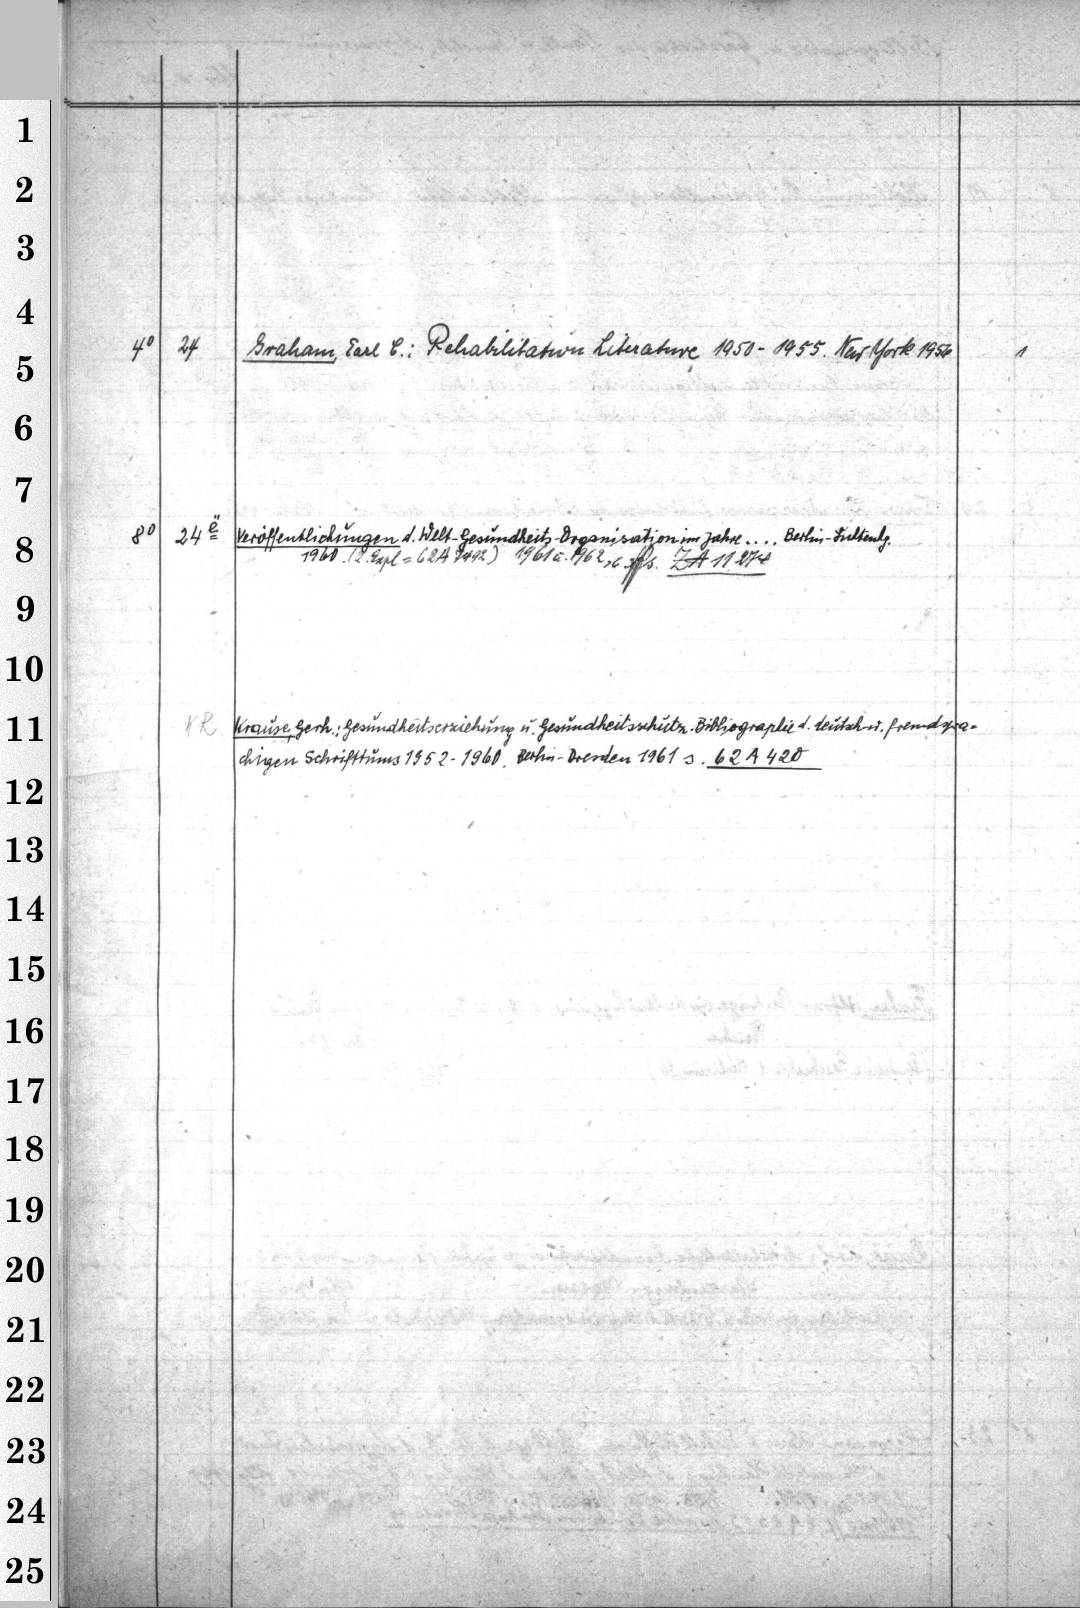 1
2
3
4
4° 24 Graham, Earl C.: Rehabilitation Literature 1950-1955. New York 1956 1
5
6
7
8° 24 ë Veröffentlichungen d. Welt-Gesundheits-Organisation im Jahre .... Berlin-
8
1960 (2. Expl = 62 A 1961 u. 1962 s. ZA 11 274
9
10
11 KR Krause, Gerh.: Gesundheitserziehung u. Gesundheitsschutz. Bibliographie d. deutsch. u. fremdspra-
chigen Schrifttums 1952-1960. Berlin-Dresden 1961 s. 62 A 420
12
13
14
15
16
17
18
19
20
21
22
23
24
25